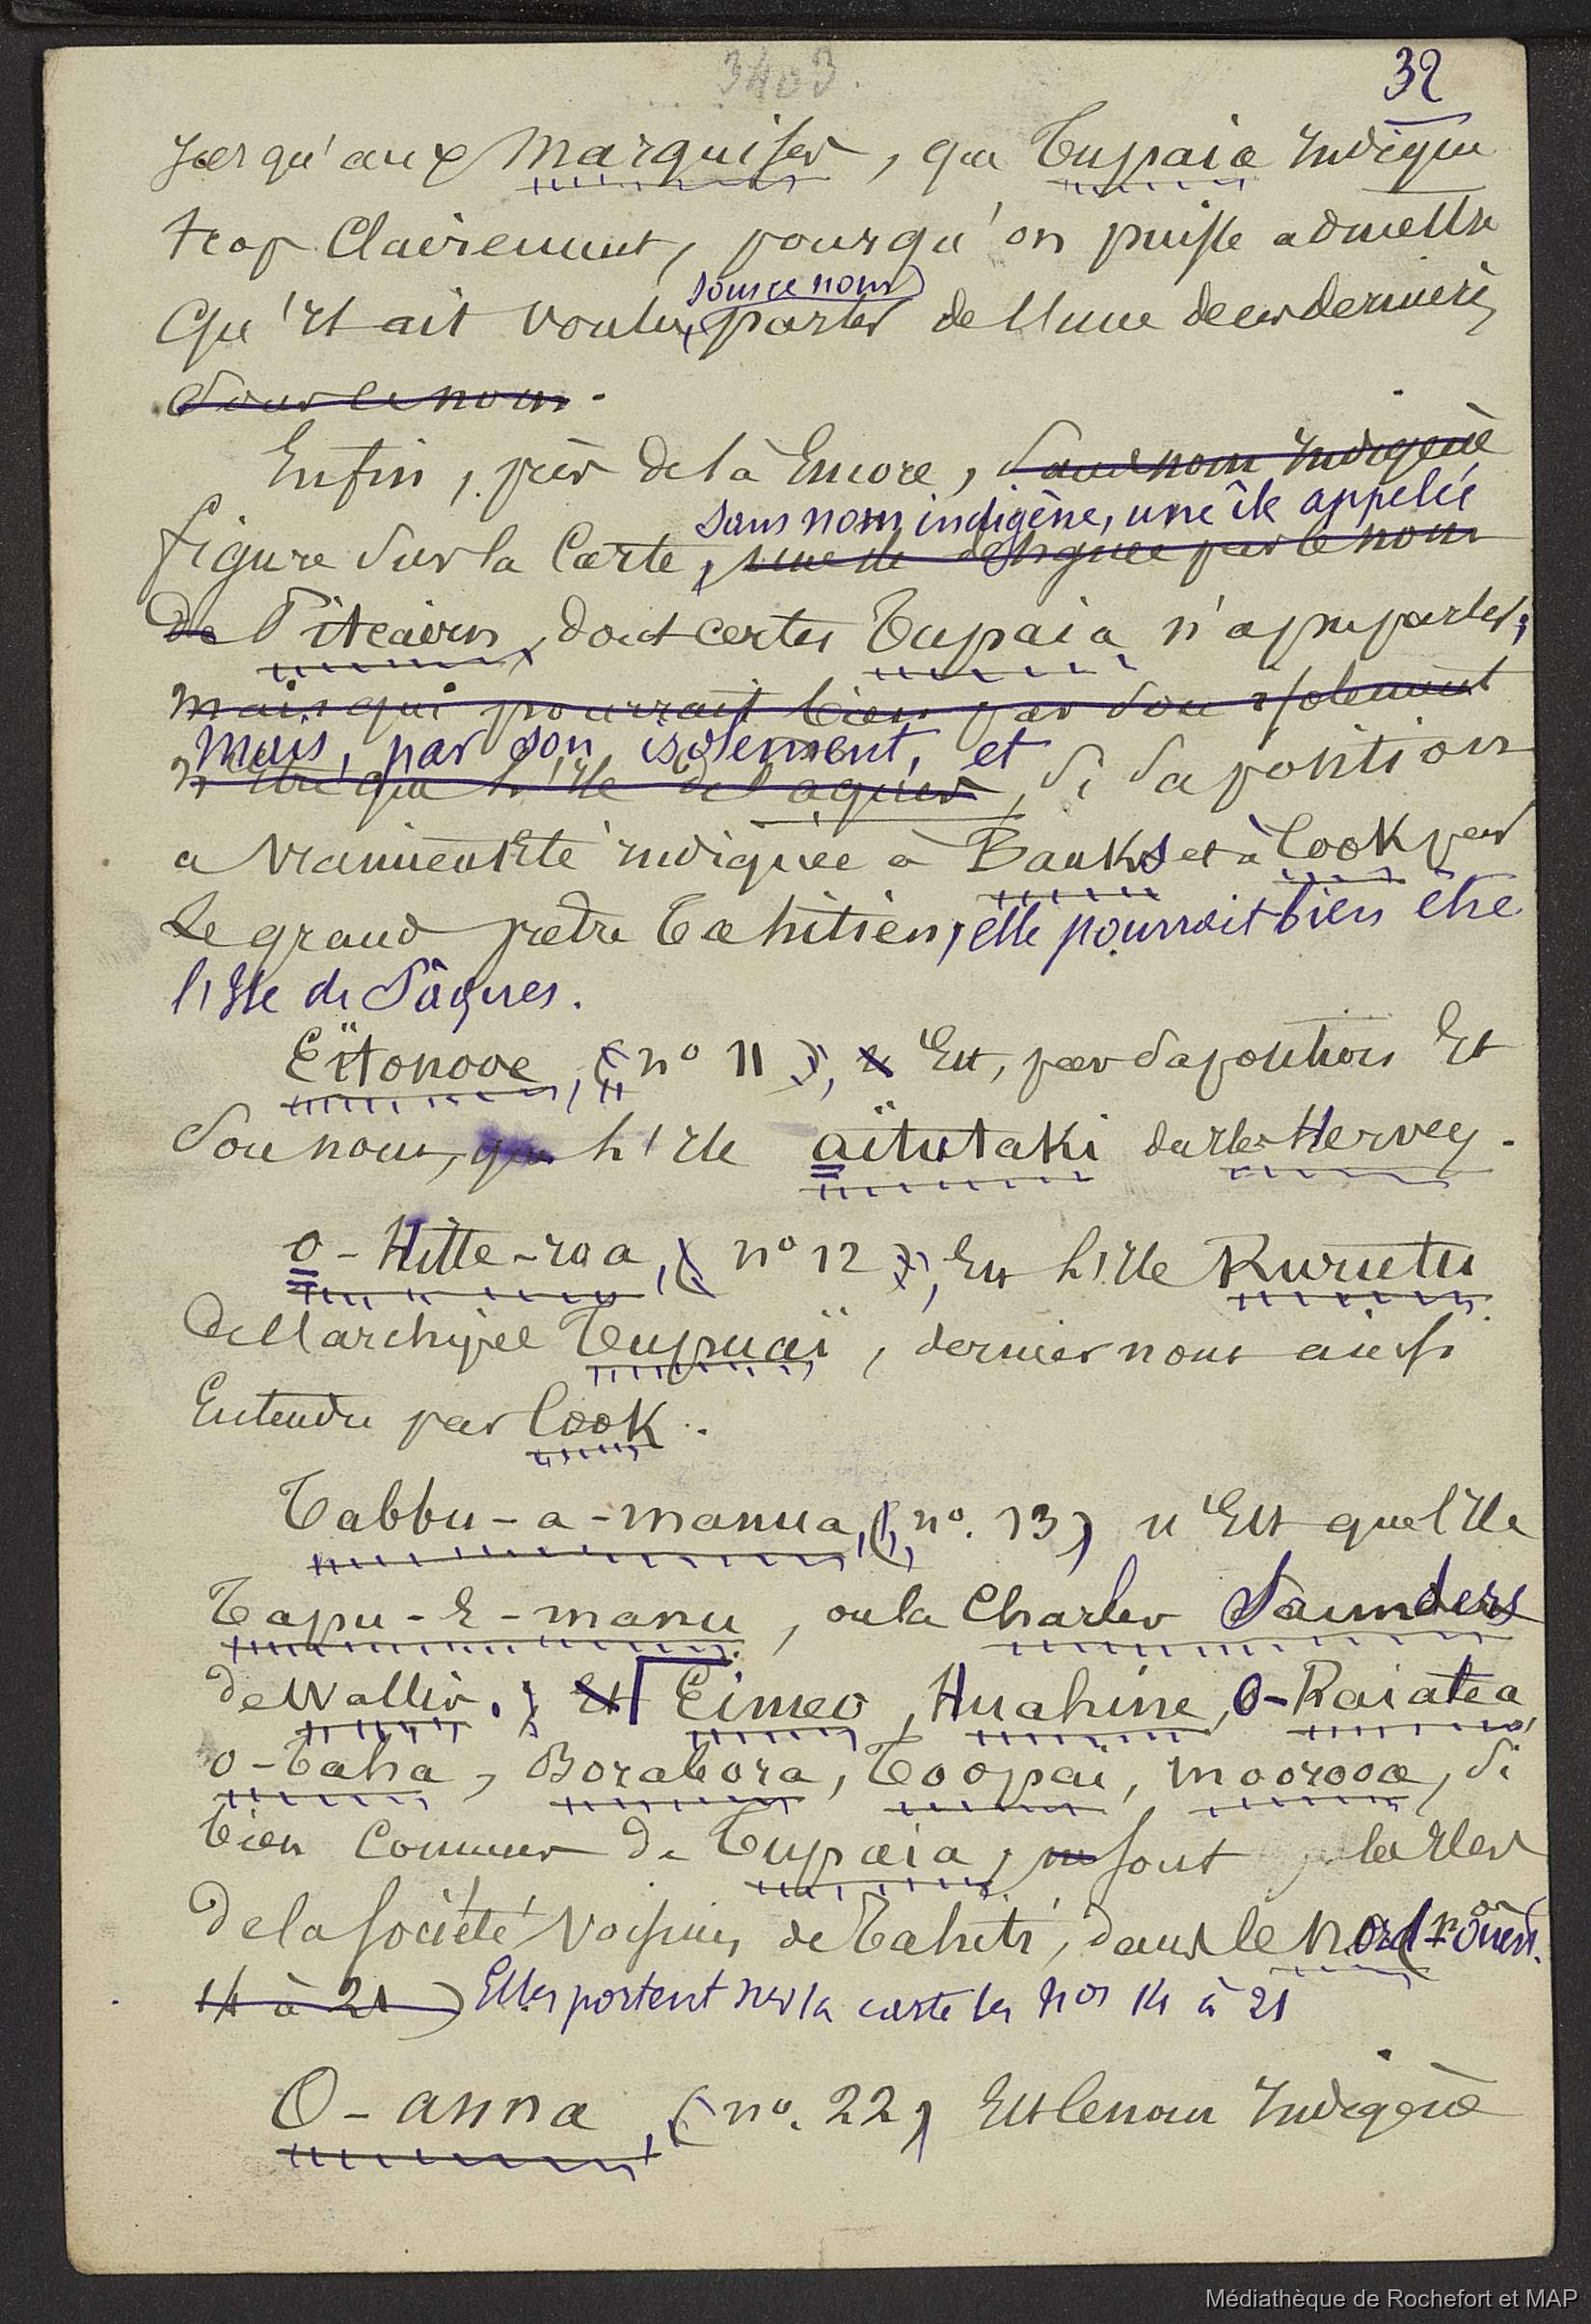 3403.
32
jusqu'aux Marquises, que Tupaia indique
trop clairement, pour qu'on puisse admettre
sous ce nom
qu'il ait voulu, parler de l'une de ces dernières
sous ce nom.
Enfin, près de là encore, sans nom indigène
sans nom indigène, une île appelée
figure sur la carte, une île désignée par le nom
de Pitcairn, dont certes Tupaia n'a pu parler;
mais qui pourrait bien par son isolement
Mais, par son isolement, et
n'être que l'île de Pâques, si sa position
a vraiment été indiquée à Banks et à Cook par
le grand prêtre Tahitien, elle pourrait bien être
l'île de Pâques.
Eïtonooe, (n° 11), est, par sa position et
son nom, que l'île aïtutaki des îles Hervey.
O-Hitte-roa, (n° 12), est l'île Rurutu
de l'archipel Tupuaï, dernier nom ainsi
entendu par Cook.
Tabbu-a-manua, (n°. 13) n'est que l'île
Tapu-E-manu, ou la Charles Saunders
de Wallis. ; et Eimeo, Huahine, O-Raiatea
O-Taha, Borabora, Toopai, moorooa, si
bien connues de Tupaia, sont les îles
de la Société voisines de Tahiti, dans le nord-ouest. (nos
14 à 21) Elles portent sur la carte les nos 14 à 21
O-anna, (n°. 22) est le nom indigène
Médiathèque de Rochefort et MAP